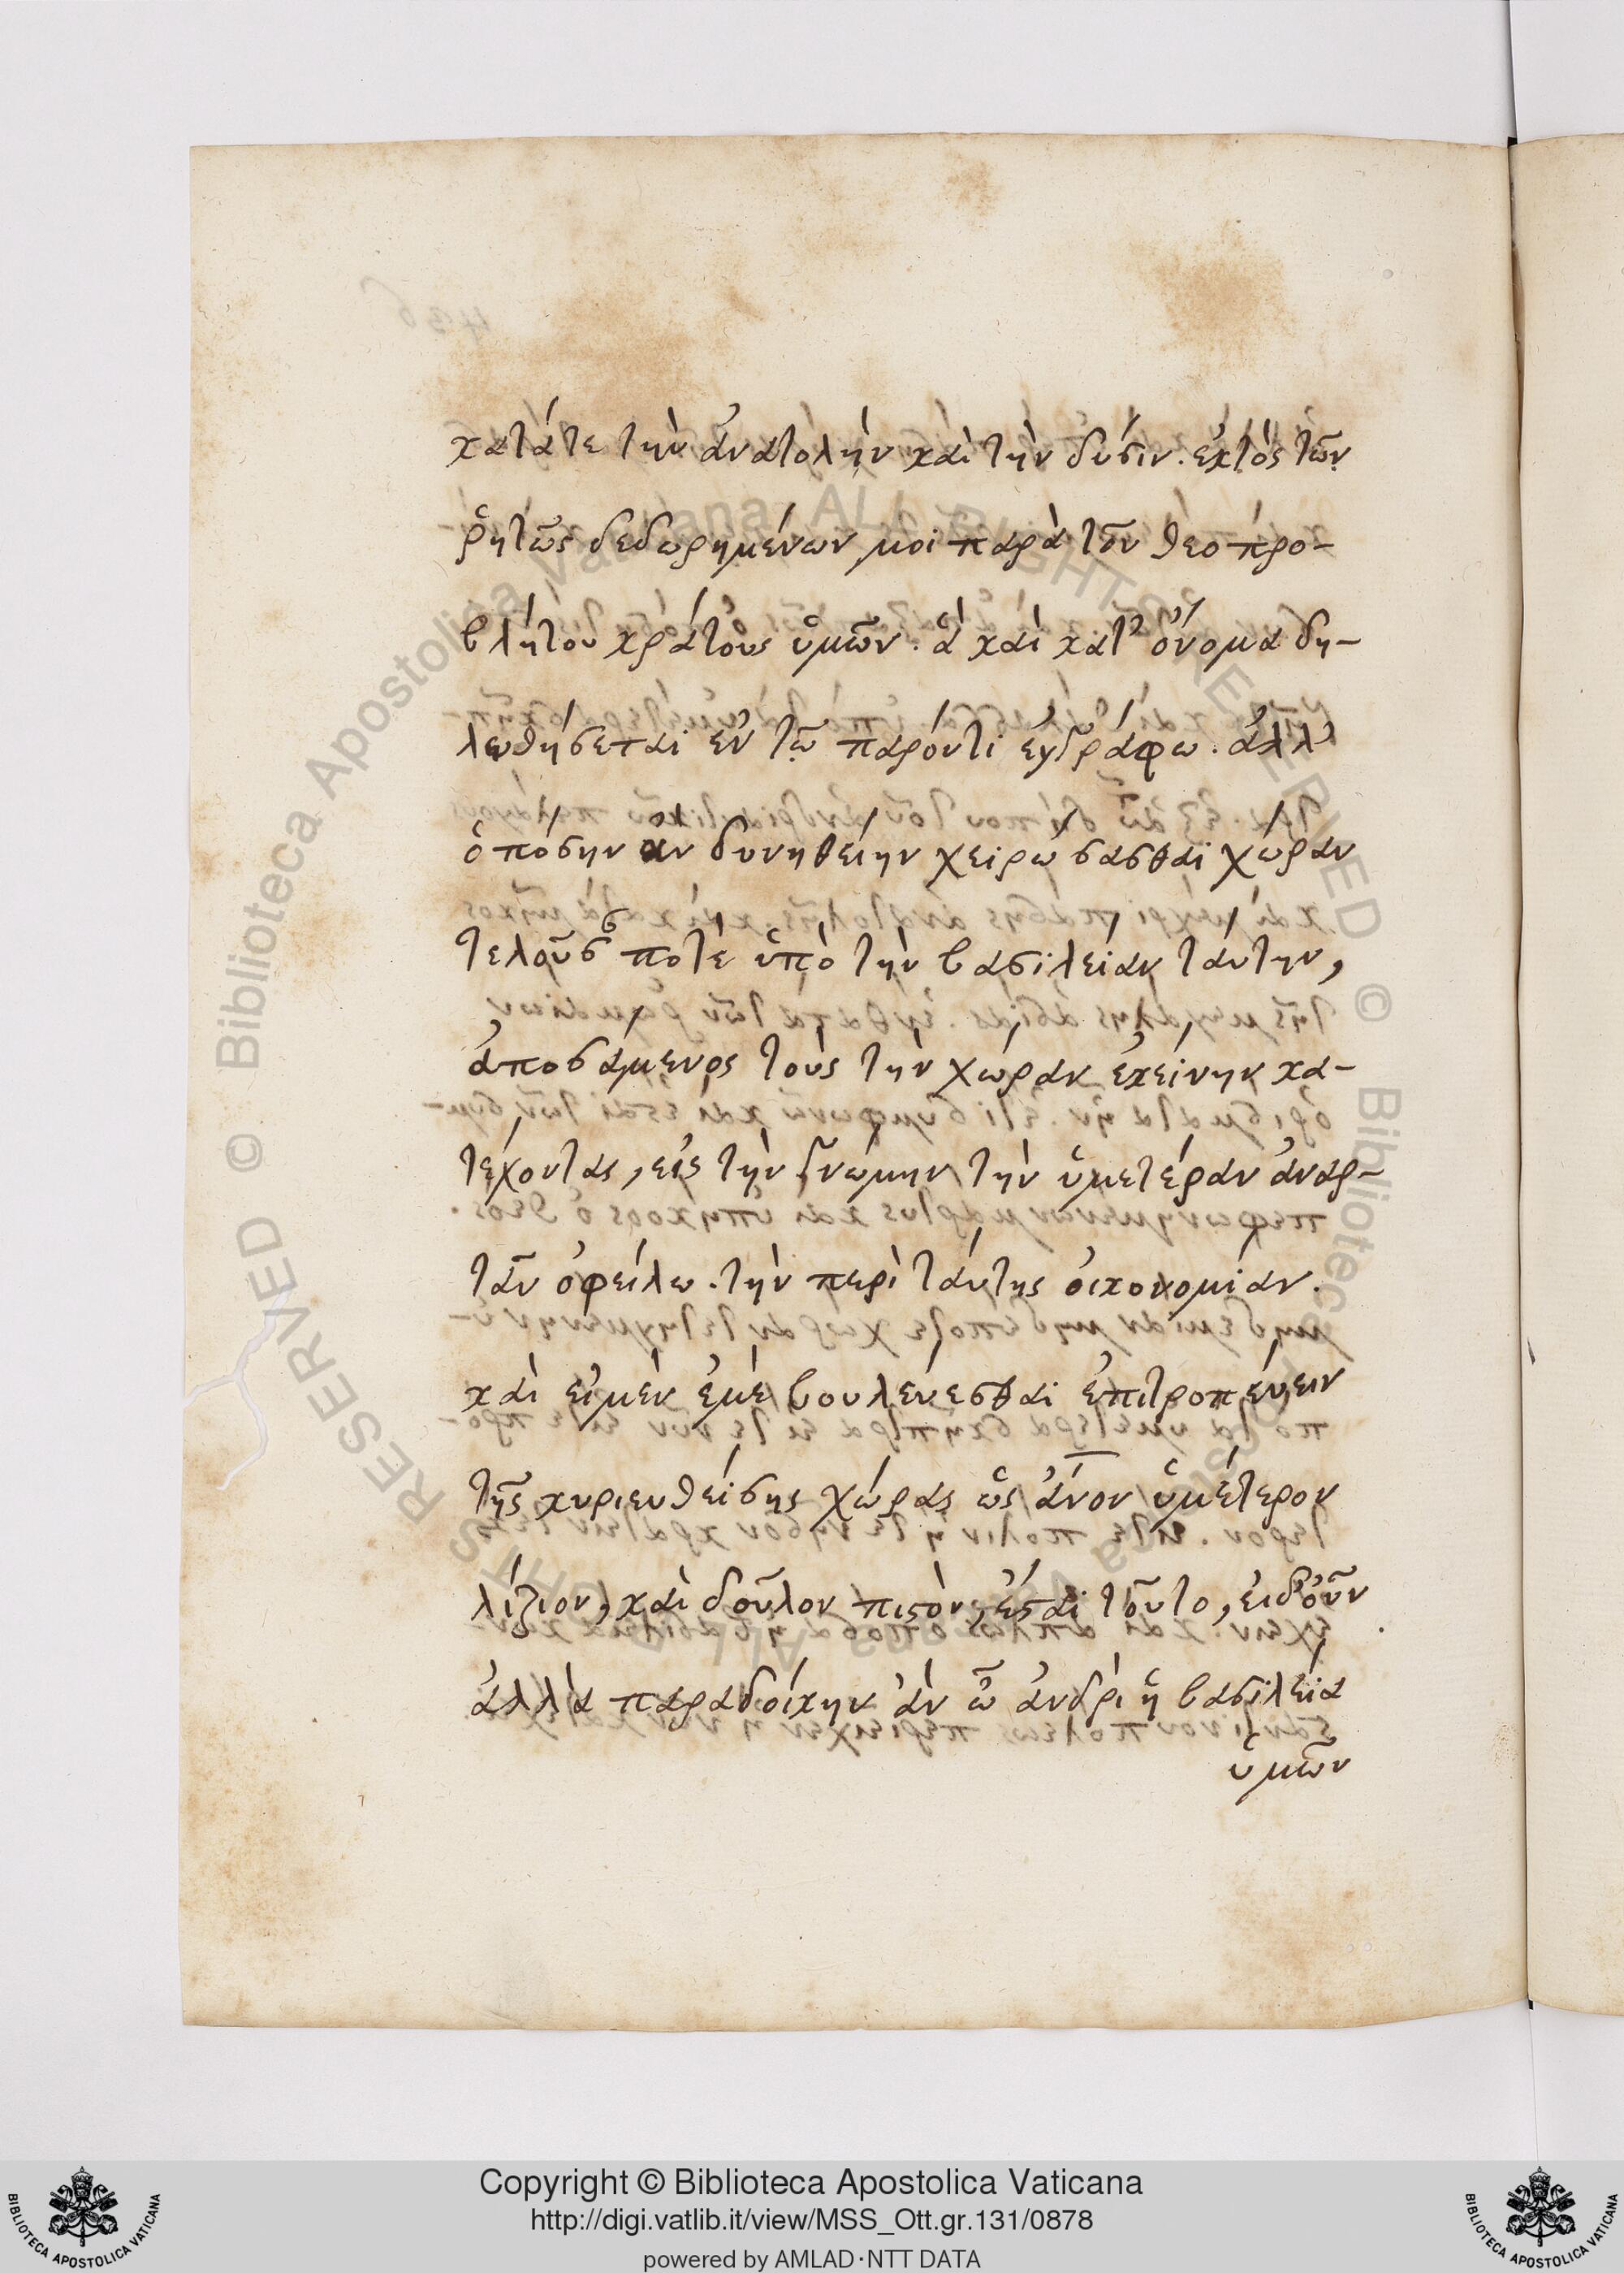 κατάτε τὴν ἀνατολὴν καὶ τὴν δύσιν. ἐκτὸς τῶν
ῥητῶς δεδωρημένων μοι παρὰ τοῦ θεοπρο-
βλήτου κράτους ὑμῶν. ἃ καὶ κατ' ὄνομα δη-
λωθήσεται ἐν τῷ παρόντι ἐγγράφω. ἀλλ'
ὁπόσην ἂν δυνηθείην χειρώσασθαι χώραν
τελοῦσ ποτὲ ὑπὸ τὴν βασιλείαν ταύτην,
ἀποσάμενος τοὺς τὴν χώραν ἐκείνην κα-
τέχοντας, εἰς τὴν γνώμην τὴν ὑμετέραν ἀναρ-
τᾶν ὀφείλω. τὴν περὶ ταύτης οἰκονομίαν.
καὶ εἰμὲν ἐμὲ βουλεύεσθαι ἐπιτροπεύειν
τῆς κυριευθείσης χώρας ὡς ἄνον ὑμέτερον
λίζιον, καὶ δοῦλον πιστὸν, ἔσται τοῦτο, εἰδ'οὖν
ἀλλὰ παραδοίχην ἂν ᾧ ἀνδρὶ ἡ βασιλεία
ὑμῶν
Copyright © Biblioteca Apostolica Vaticana
http://digi.vatlib.it/view/MSS_Ott.gr.131/0878
powered by AMLAD·NTT DATA
BIBLIOTECA APOSTOLICA VATICANA
BIBLIOTECA APOSTOLICA VATICANA